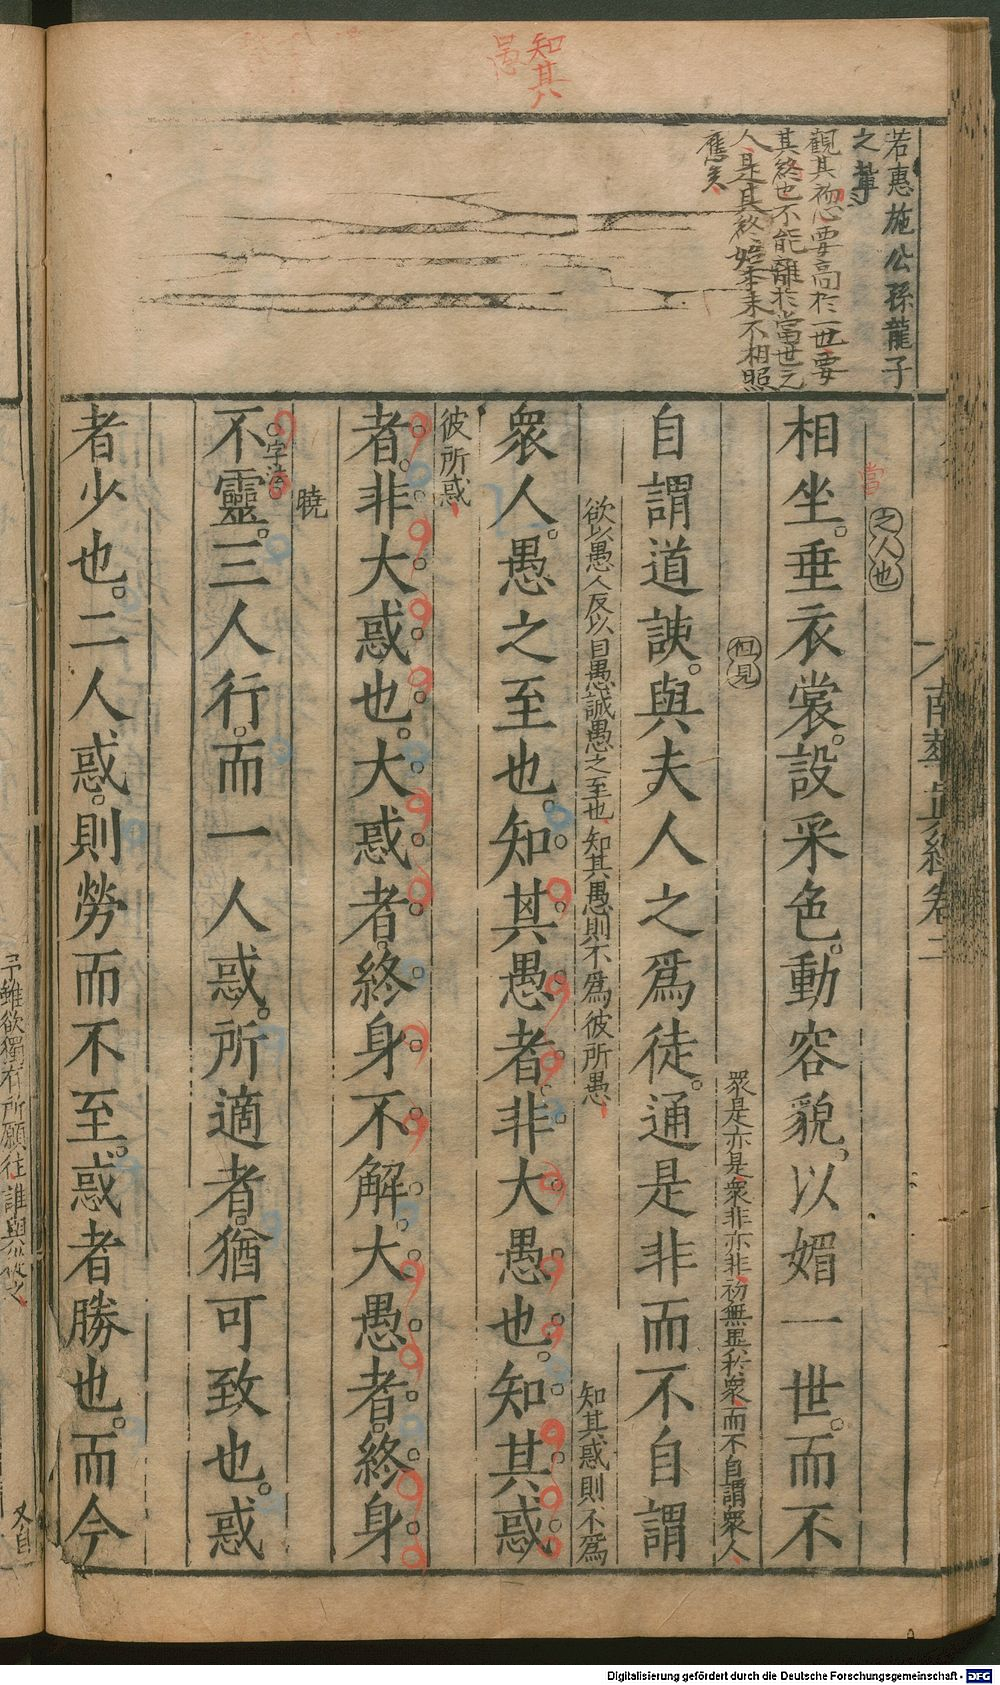 知其
愚
若惠施公孫龍子
之輩
觀其初心要高於一世要
其終也不能離於當世之
人是其終始本末不相照
應矣
南華真經卷二
當
之人也
相坐垂衣裳設采色動容貌以媚一世而不
但見
眾是亦是眾非亦非初無異於眾而不自謂眾人
自謂道諛與夫人之為徒通是非而不自謂
欲以愚人反以自愚誠愚之至也知其愚則不為彼所愚
知其惑則不為
衆人愚之至也知其愚者非大愚也知其惑
彼所惑
者非大惑也大惑者終身不解大愚者終身
曉
字法
不靈三人行而一人惑所適者猶可致也惑
者少也二人惑則勞而不至惑者勝也而今
予雖欲獨有所願往誰與從之
Digitalisierung gefördert durch die Deutsche Forschungsgemeinschaft - DFG